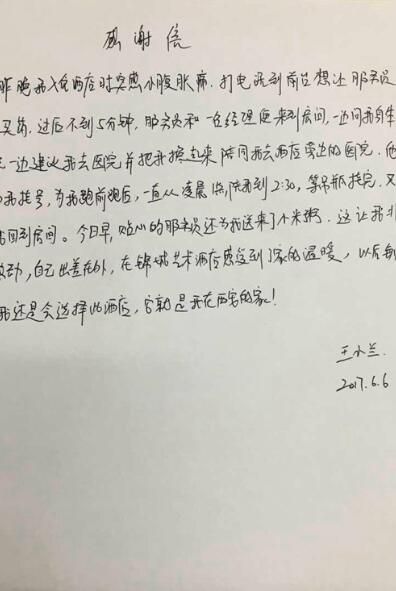 感谢信
昨晚我入住酒店时突感小腹胀痛，打电话到前台想让服务员
买药，过后不到5分钟，服务员和一名经理便来到房间，一边问我身
一边建议我去医院并把我搀起来陪同我去酒店旁边的医院。他
我挂号，为我跑前跑后，一直从凌晨 陪我到2:30，等吊瓶挂完，又
回到房间。今日早，贴心的服务员还为我送来了小米粥。这让我非
感动，自己出差在外，在锦城艺术酒店感受到了家的温暖，以后
我还是会选择此酒店，它就是我在西安的家！
王小兰.
2017.6.6